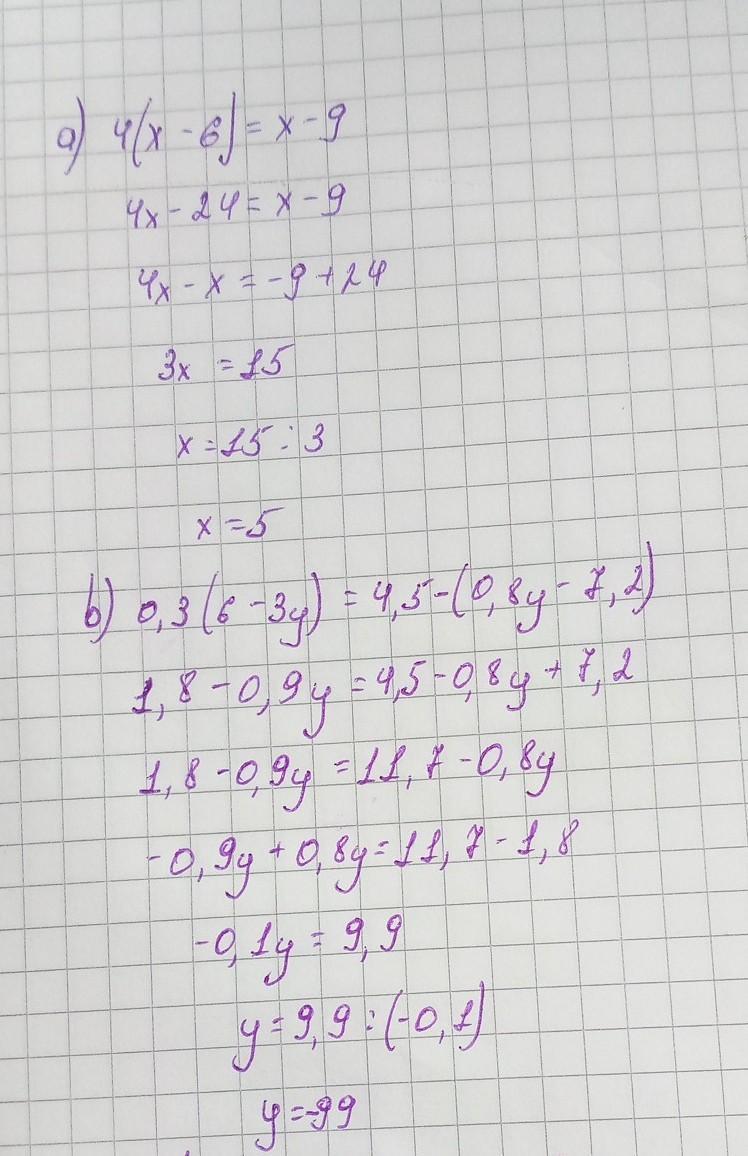 a) 4(x - 6) = x - 9
4x - 24 = x - 9
4x - x = -9 + 24
3x = 15
x = 15 : 3
x = 5
b) 0,3(6 - 3y) = 4,5 - (0,8y - 7,2)
1,8 - 0,9y = 4,5 - 0,8y + 7,2
1,8 - 0,9y = 11,7 - 0,8y
-0,9y + 0,8y = 11,7 - 1,8
-0,1y = 9,9
y = 9,9 : (-0,1)
y = -99